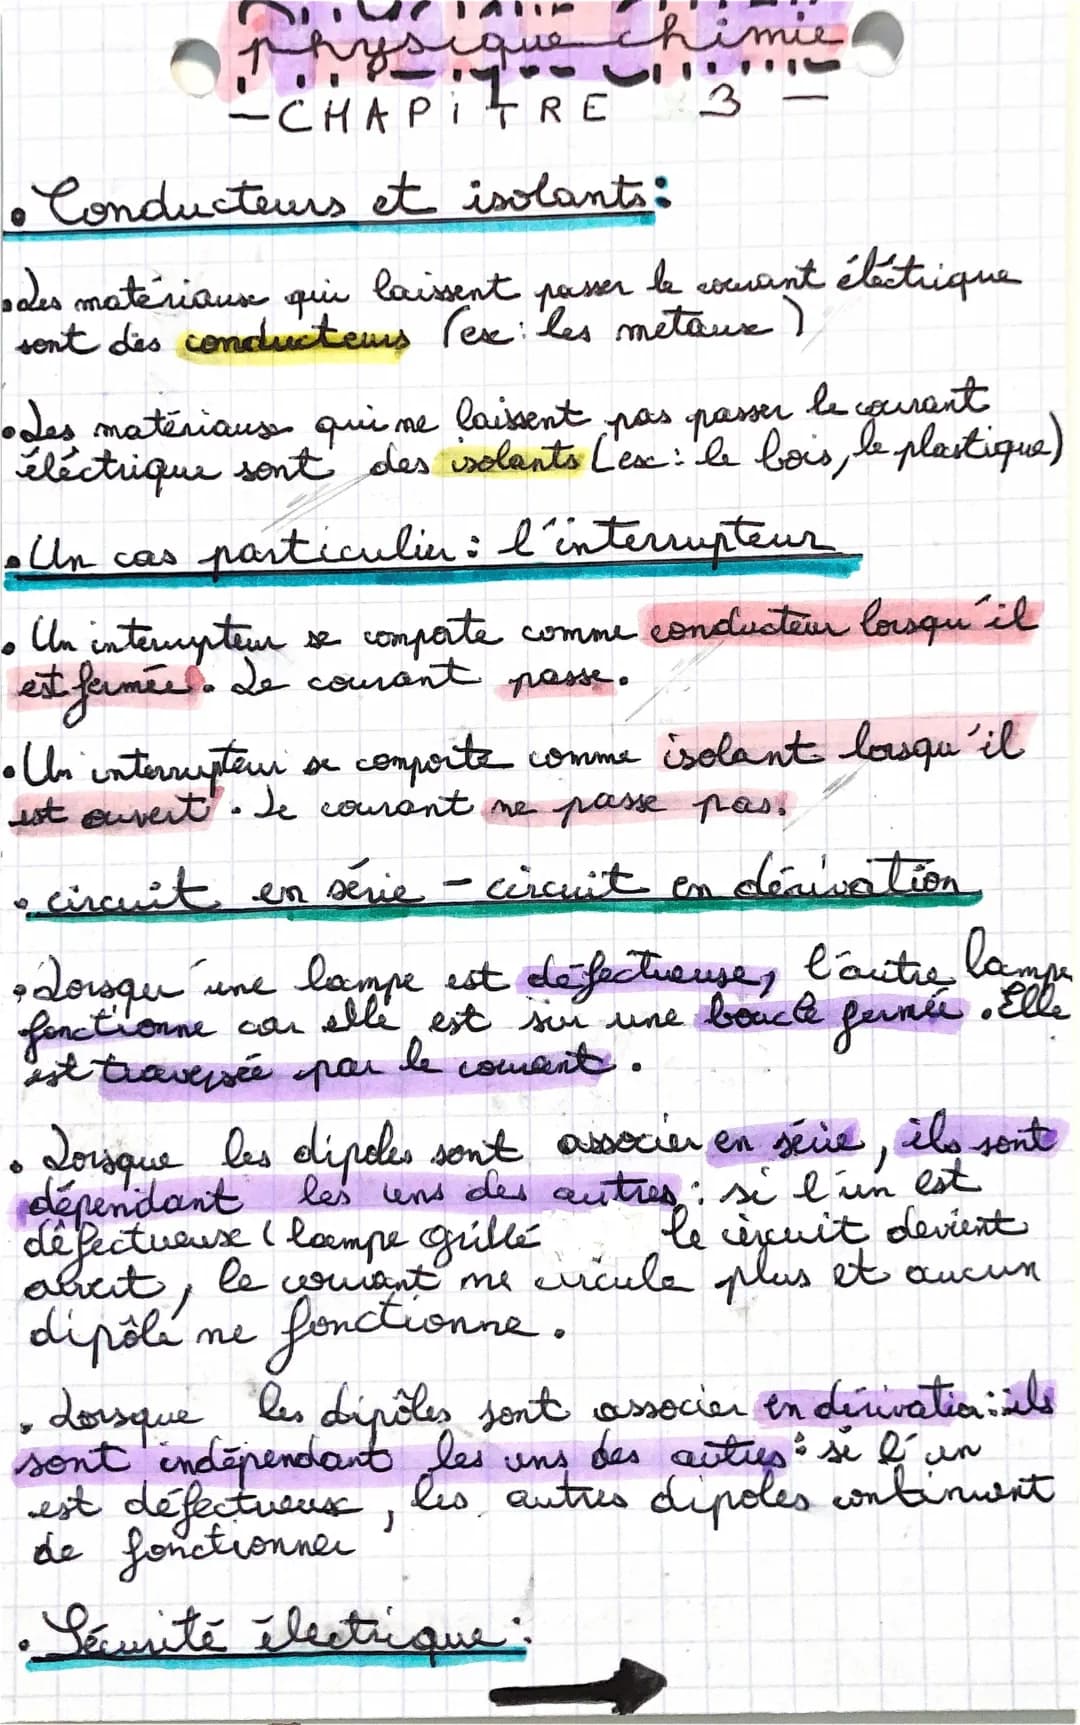 physique chimie
- CHAPiTRE 3 -
• Conducteurs et isolants:
• Les matériaux qui laissent passer le courant éléctrique
sont des conducteurs (ex: les metaux)
• Les matériaux qui ne laissent pas passer le courant
éléctrique sont des isolants (ex: le bois, le plastique)
• Un cas particulier: l'interrupteur
• Un interrupteur se comporte comme conducteur lorsqu'il
est fermée. Le courant passe.
• Un interrupteur se comporte comme isolant lorsqu'il
est ouvert. Le courant ne passe pas.
• circuit en série - circuit en dérivation
• Lorsqu'une lampe est défectueuse, l'autre lampe
fonctionne car elle est sur une boucle fermée. Elle
est traversée par le courant.
• Lorsque les dipoles sont associer en série, ils sont
dépendant les uns des autres: si l'un est
défectueuse (lampe grillé le circuit devient
, le courant ne circule plus et aucun
dipôle ne fonctionne.
• Lorsque les dipôles sont associer en dérivation: ils
sont indépendant les uns des autres: si l'un
est défectueux, les autres dipoles continuent
de fonctionner
• Sécurité électrique: